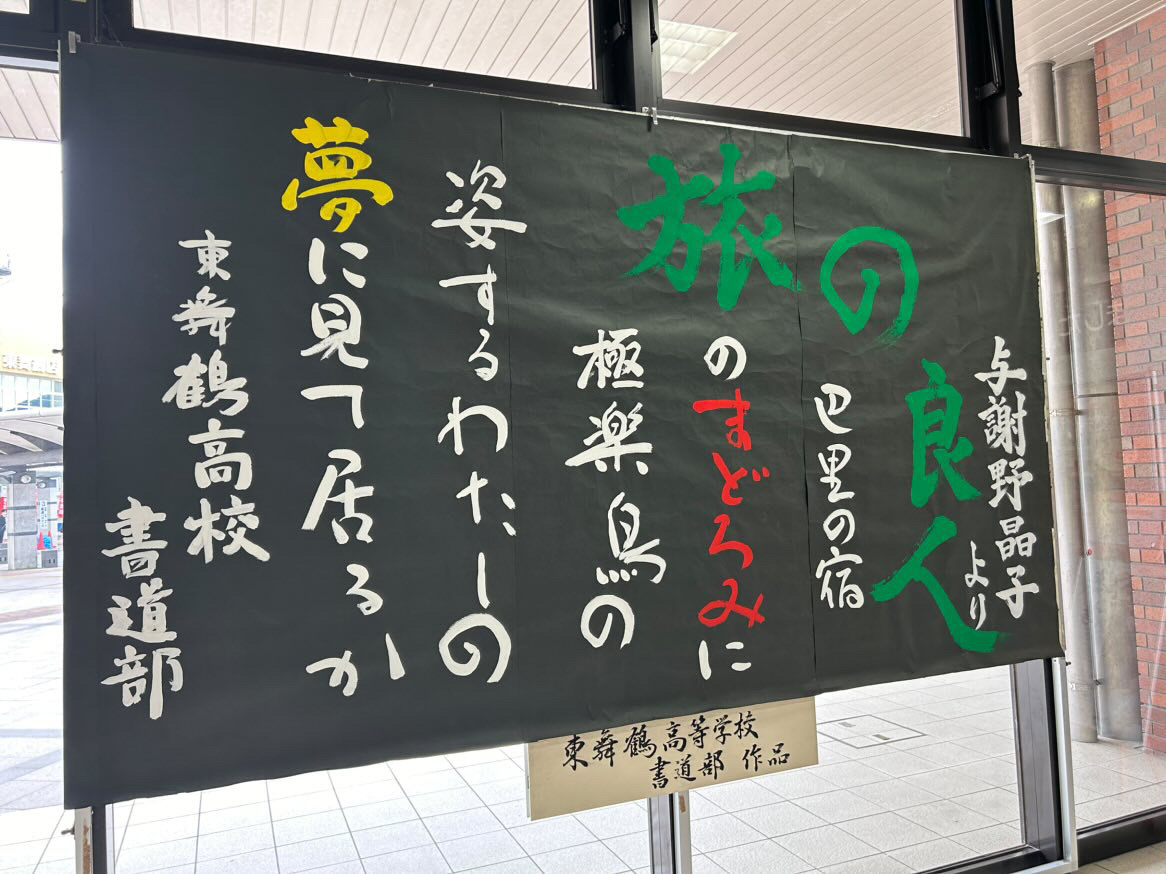 与謝野晶子
より
良人の旅
巴里の宿
のまどろみに
極楽鳥の
姿するわたしの
夢に見て居るか
東舞鶴高校
書道部
東舞鶴高等学校
書道部 作品